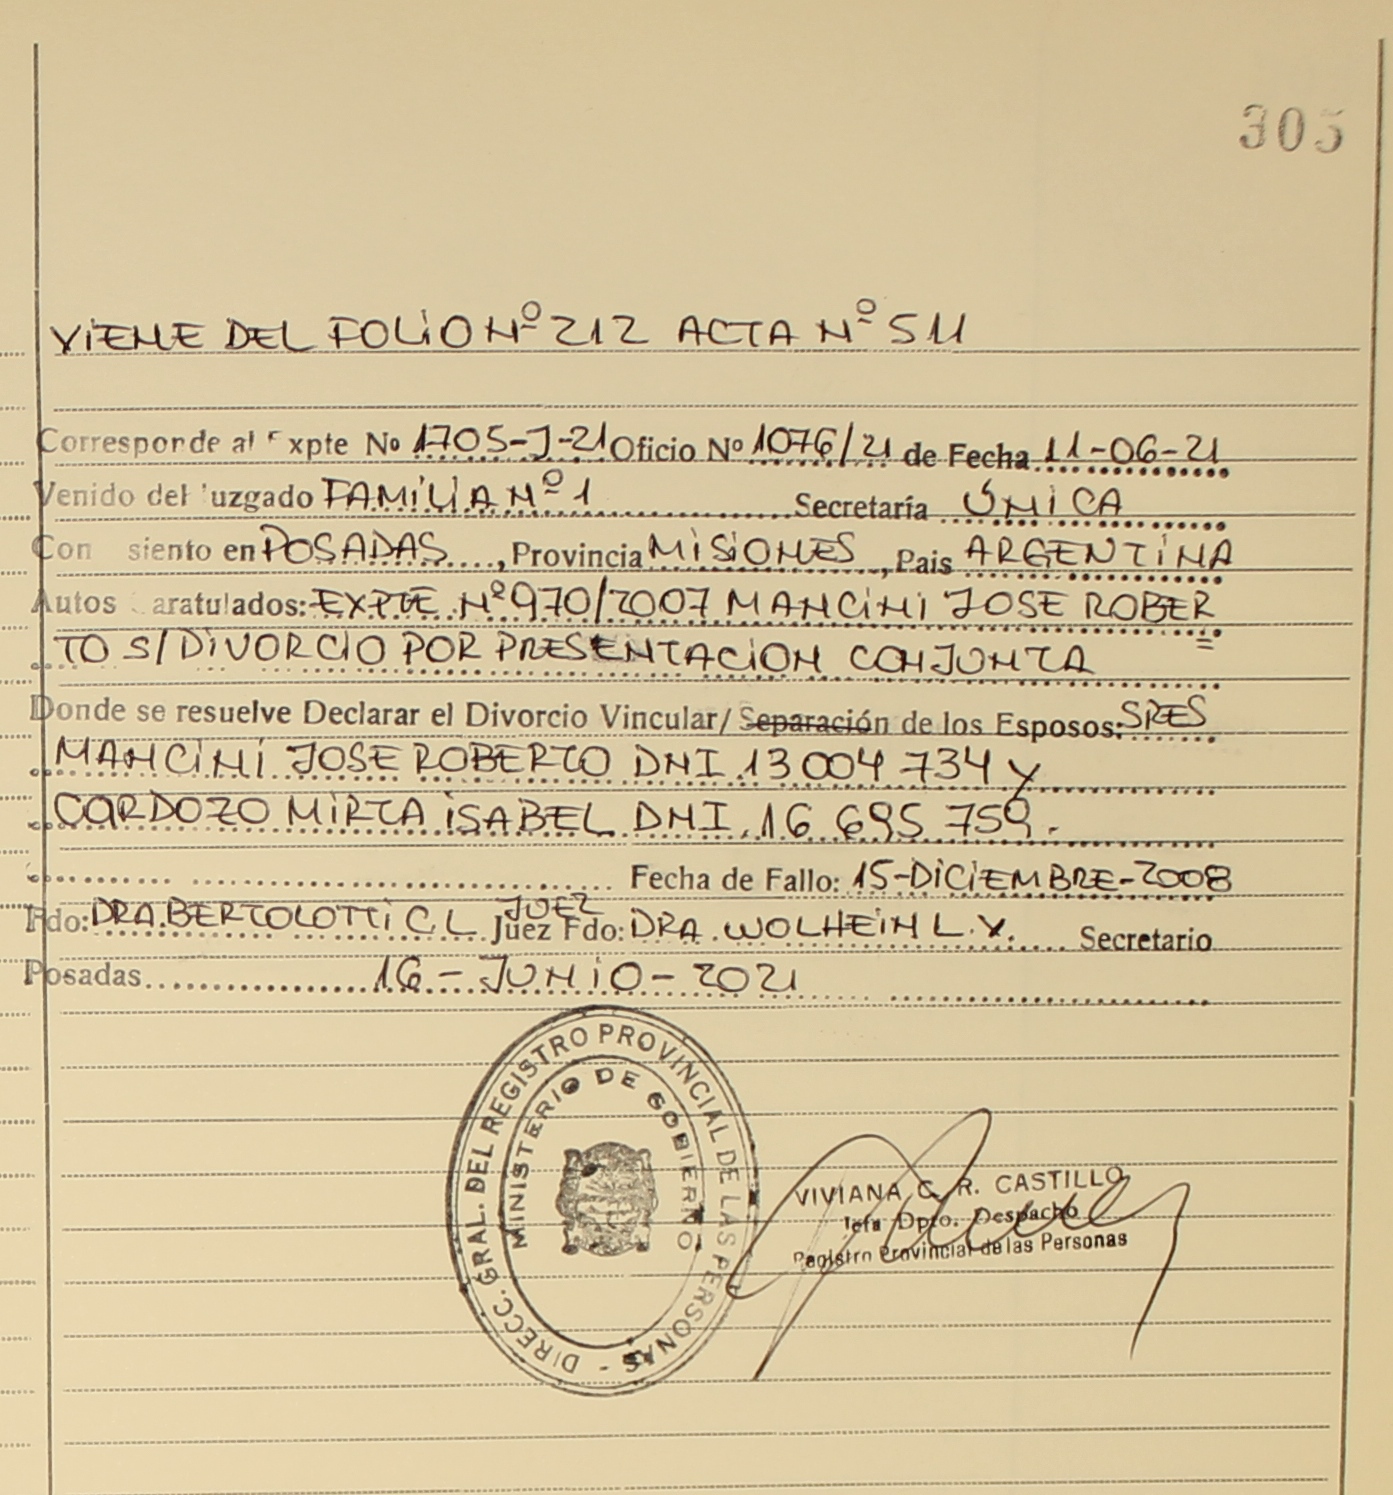 305
VIENE DEL FOLIO Nº 212 ACTA Nº 511
Corresponde al Expte Nº 1705-J-21 Oficio Nº 1076/21 de Fecha 11-06-21
Venido del Juzgado FAMILIA Nº 1 Secretaría ÚNICA
Con siento en POSADAS, Provincia MISIONES, Pais ARGENTINA
Autos Caratulados: EXPTE Nº 970/2007 MANCINI JOSE ROBER=
TO S/DIVORCIO POR PRESENTACION CONJUNTA
Donde se resuelve Declarar el Divorcio Vincular/ Separación de los Esposos: SRES
MANCINI JOSE ROBERTO DNI 13 004 734 Y
CARDOZO MIRTA ISABEL DNI 16 695 759.
Fecha de Fallo: 15-DICIEMBRE-2008
Fdo: DRA. BERTOLOTTI C.L JUEZ Juez Fdo: DRA. WOLHEIN L.V. Secretario
Posadas 16-JUNIO-2021
DIRECC. GRAL. DEL REGISTRO PROVINCIAL DE LAS PERSONAS -
MINISTERIO DE GOBIERNO
VIVIANA C. R. CASTILLO
Jefa Dpto. Despacho
Registro Provincial de las Personas